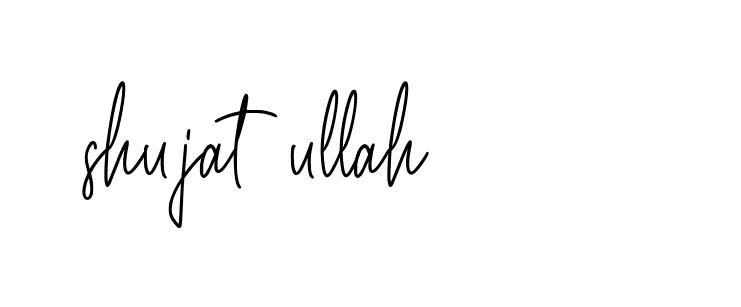 shujat ullah